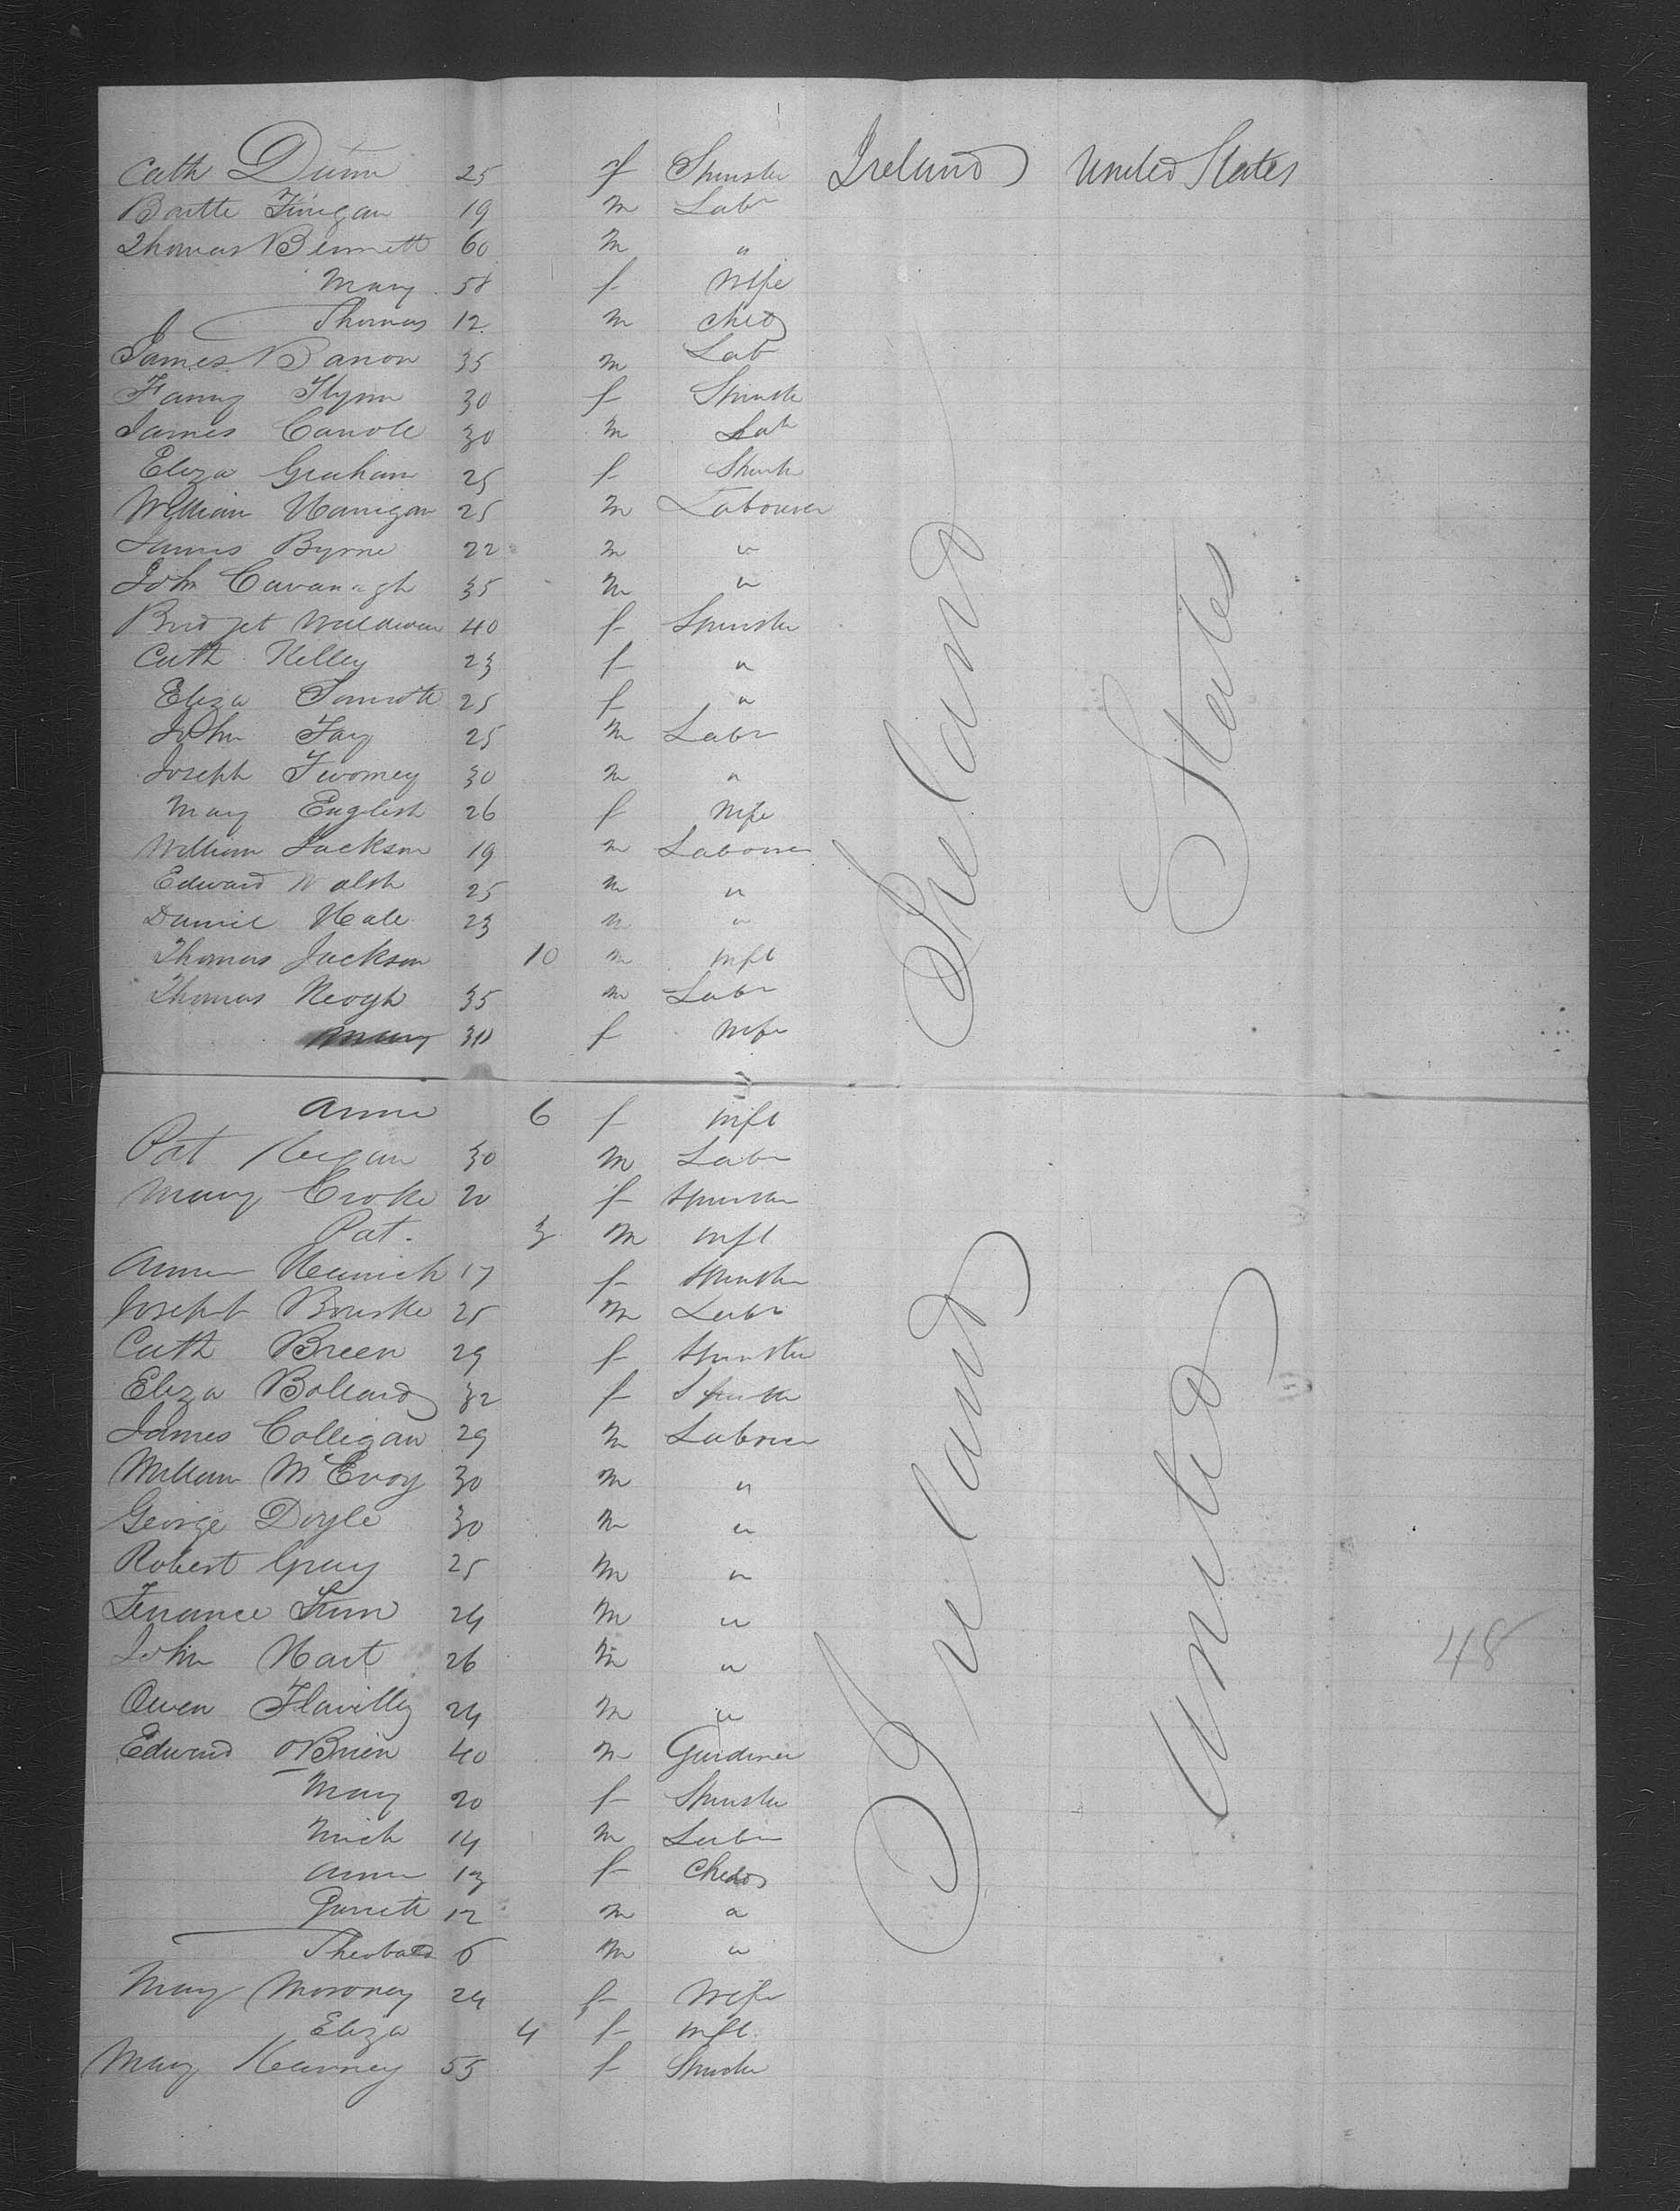 Cath Dunn 25 f Spinster Ireland United States
Bartle Finigan 19 m Labr
Thomas Bennett 60 m "
Mary 58 f Wife
Thomas 12 m Child
James Banon 35 m Lab
Fanny Flynn 30 f Spinster
James Carroll 30 m Lab
Eliza Graham 25 f Spinster
William Hanigan 25 m Labourer
James Byrne 22 m "
John Cavanagh 35 m "
Bridget 40 f Spinster
Cath Kelley 23 f "
Eliza 25 f "
John Fay 25 m Labr
Joseph Twomey 30 m "
Mary English 26 f Wife
William Jackson 19 m Labourer
Edward Walsh 25 m "
Daniel Hale 23 m "
Thomas Jackson 10 m Inft
Thomas Keogh 35 m Labr
Mary 30 f Wife
Anne 6 f Inft
Pat Keegan 30 m Labr
Mary Croke 20 f Spinster
Pat. 3 m Inft
Anne 17 f Spinster
Joseph Bourke 25 m Labr
Cath Breen 29 f Spinster
Eliza Bollard 32 f Spinster
James Colligan 29 m Labourer
William McEvoy 30 m "
George Doyle 30 m "
Robert Gray 25 m "
Terrance 24 m "
John Hart 26 m "
Owen 24 m "
Edward OBrien 40 m Gardener
Mary 20 f Spinster
Mich 14 m Labr
Anne 13 f Child
Garrett 12 m "
Theobald 6 m "
Mary Moroney 24 f Wife
Eliza 4 f Inft
Mary Kearney 55 f Spinster
Ireland
Ireland
United
States
48